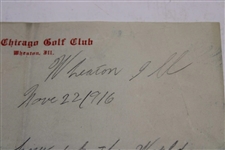 Chicago Golf Club
Wheaton, Ill.
Wheaton Ill
Nove 22 1916